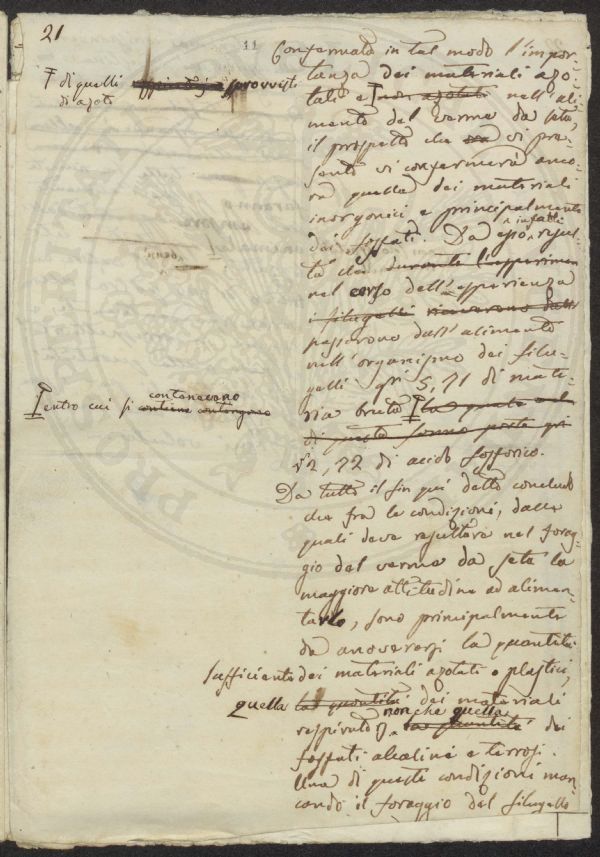 21
11
Confermata in tal modo l'impor-
tanza dei materiali azo-
tati e non azotati nell'ali-
mento del verme da seta,
il prospetto che vi pre-
sento vi confermerà anco-
ra quella dei materiali
inorganici e principalmente
dei fosfati. Da esso infatti resul-
ta che durante l'esperimen
nel corso dell'esperienza
i filugelli ricaverono dall'
passarono dall'alimento
nell'organismo dei filu-
gelli gri 5,71 di mate-
ria bruta
di questa sonno parte gri
2,22 di acido fosforico.
Da tutto il fin qui detto concludo
che fra le condizioni, dalle
quali deve resultare nel forag-
gio del verme da seta la
maggiore attitudine ad alimen-
tarlo, sono principalmente
da annoverarsi la quantità
sufficiente dei materiali azotati e plastici,
quella la quantità dei materiali
respiratorj nonchè quella la quantità dei
fosfati alcalini e terrosi.
Una di queste condizioni man-
cando il foraggio del filugello
di quelli sprovvisti
di azoto
entro cui si contenevano
contiene contengono